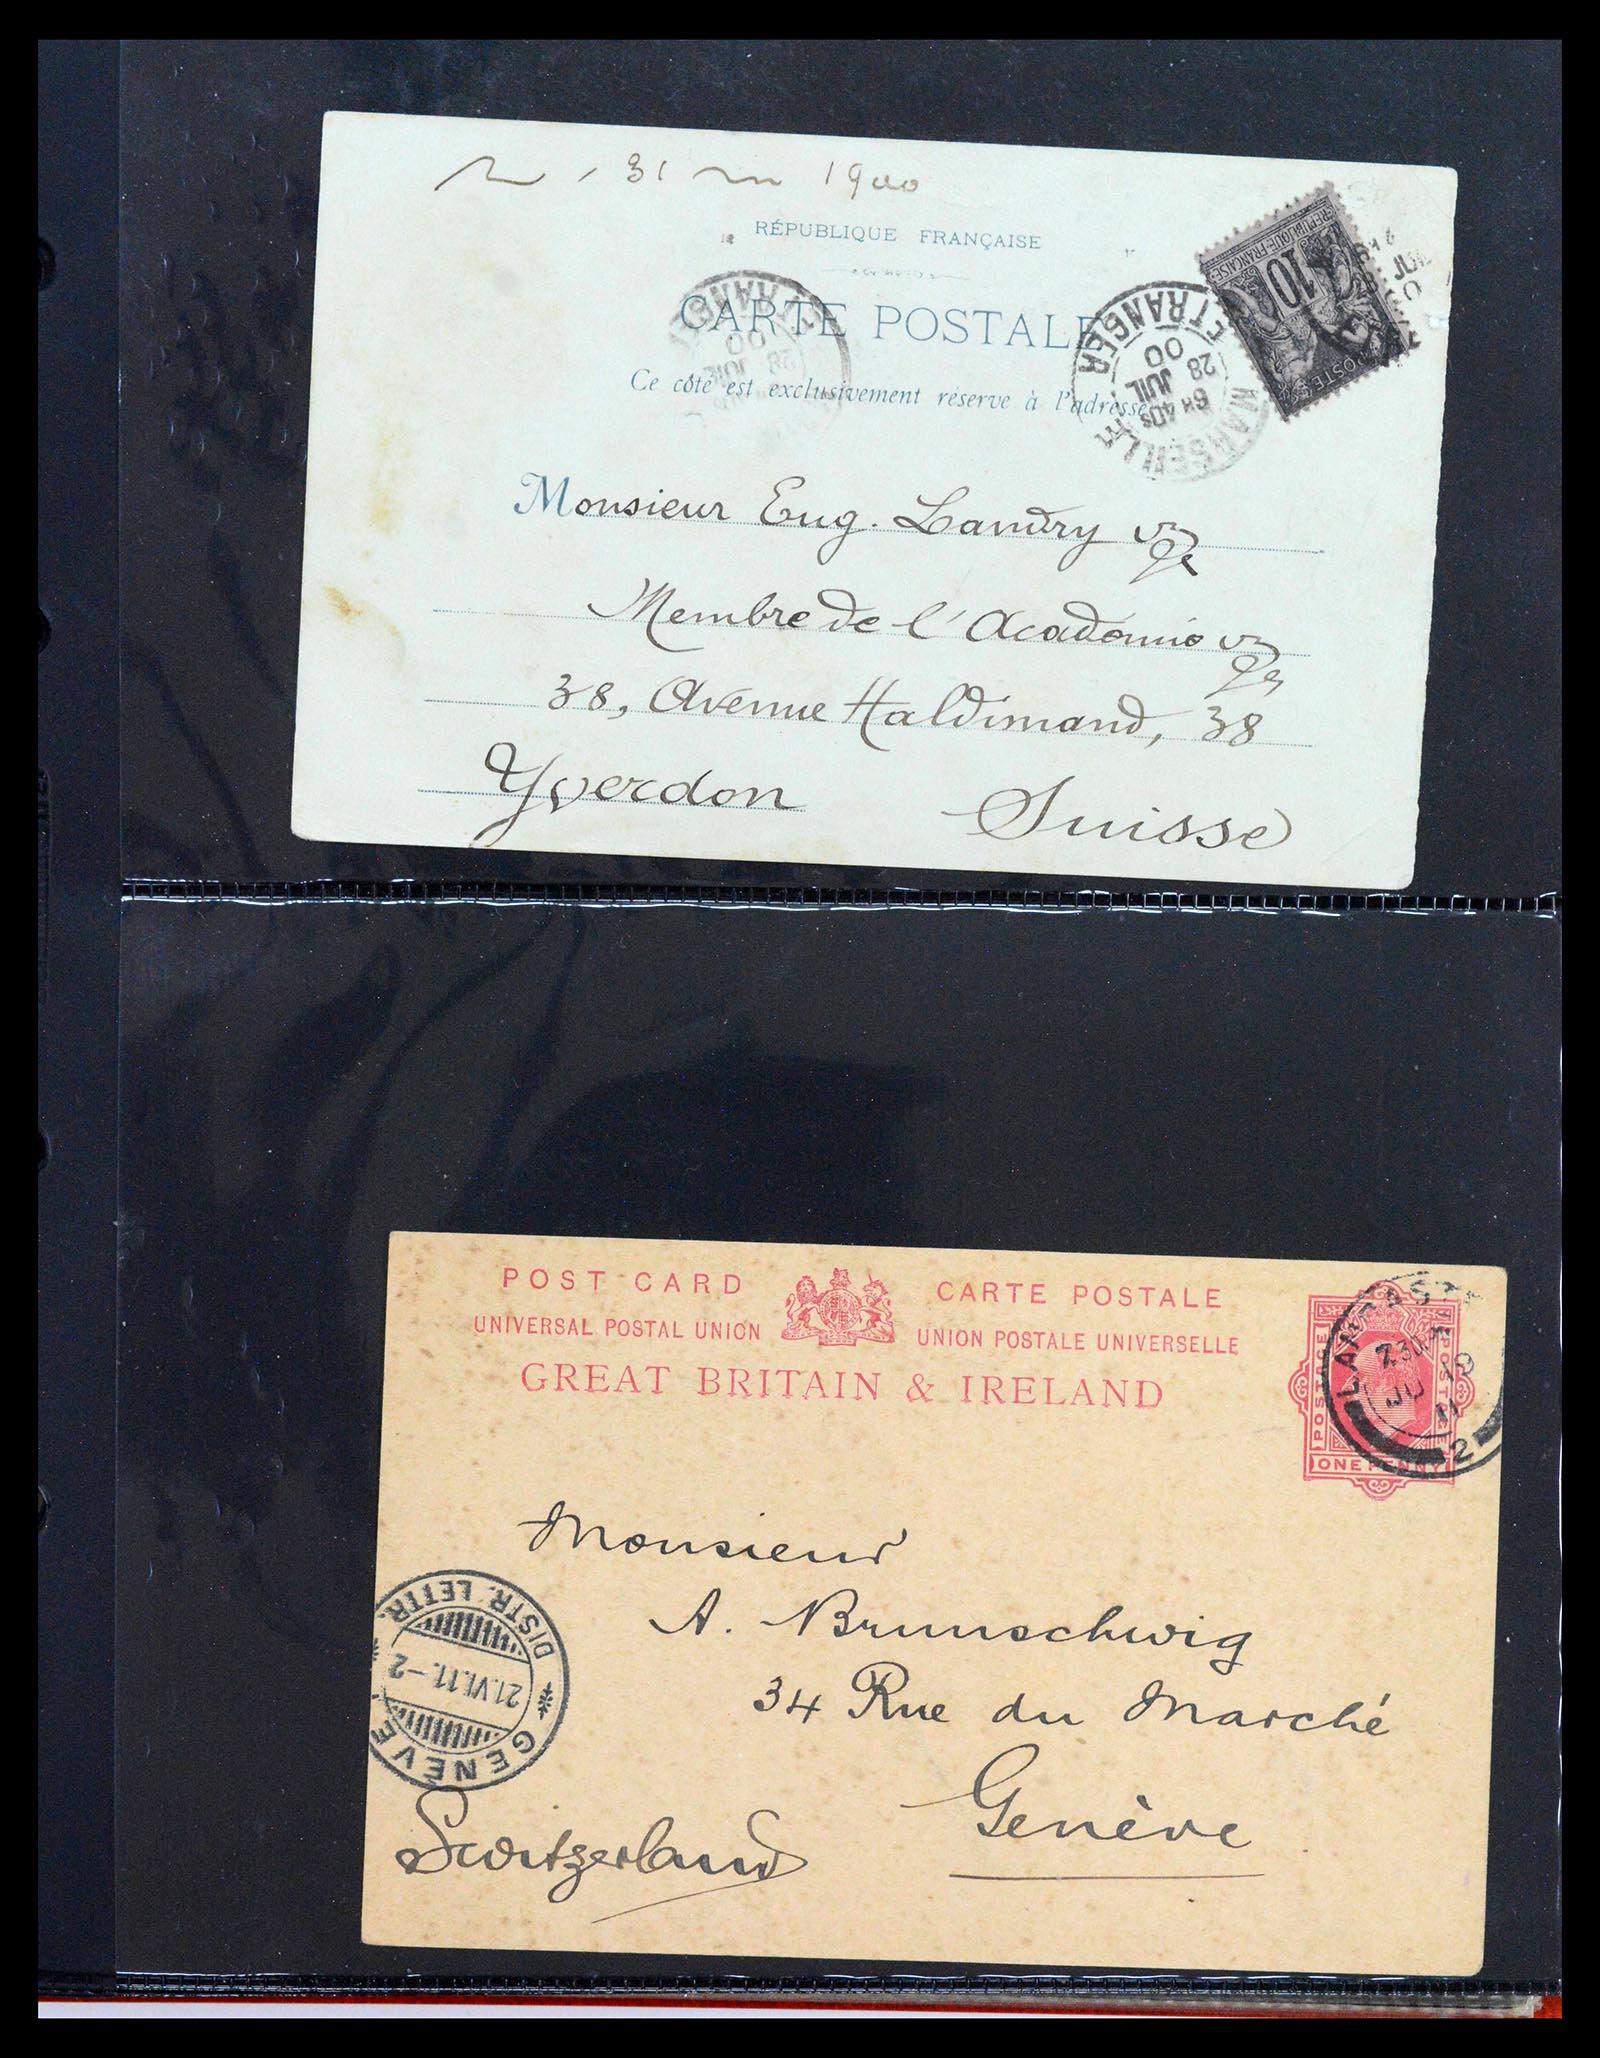 31 1900
RÉPUBLIQUE FRANÇAISE
CARTE POSTALE
Ce côté est exclusivement réservé à l'adresse
REPUBLIQUE FRANÇAISE
10
POSTES
MARSEILLE ETRANGER
6H40S
28
JUIL
00
ETRANGER
28
00
Monsieur Eug. Landry
Membre de l'Académie
38, Avenue Haldimand, 38
Yverdon Suisse
POST CARD CARTE POSTALE
UNIVERSAL POSTAL UNION UNION POSTALE UNIVERSELLE
GREAT BRITAIN & IRELAND
POSTAGE POSTAGE
ONE PENNY
JU 19
11
2
Monsieur
A. Brunschwig
34 Rue du Marché
Genève
Switzerland
DISTR. LETTR.
21.VI.11.-2
GENÈVE